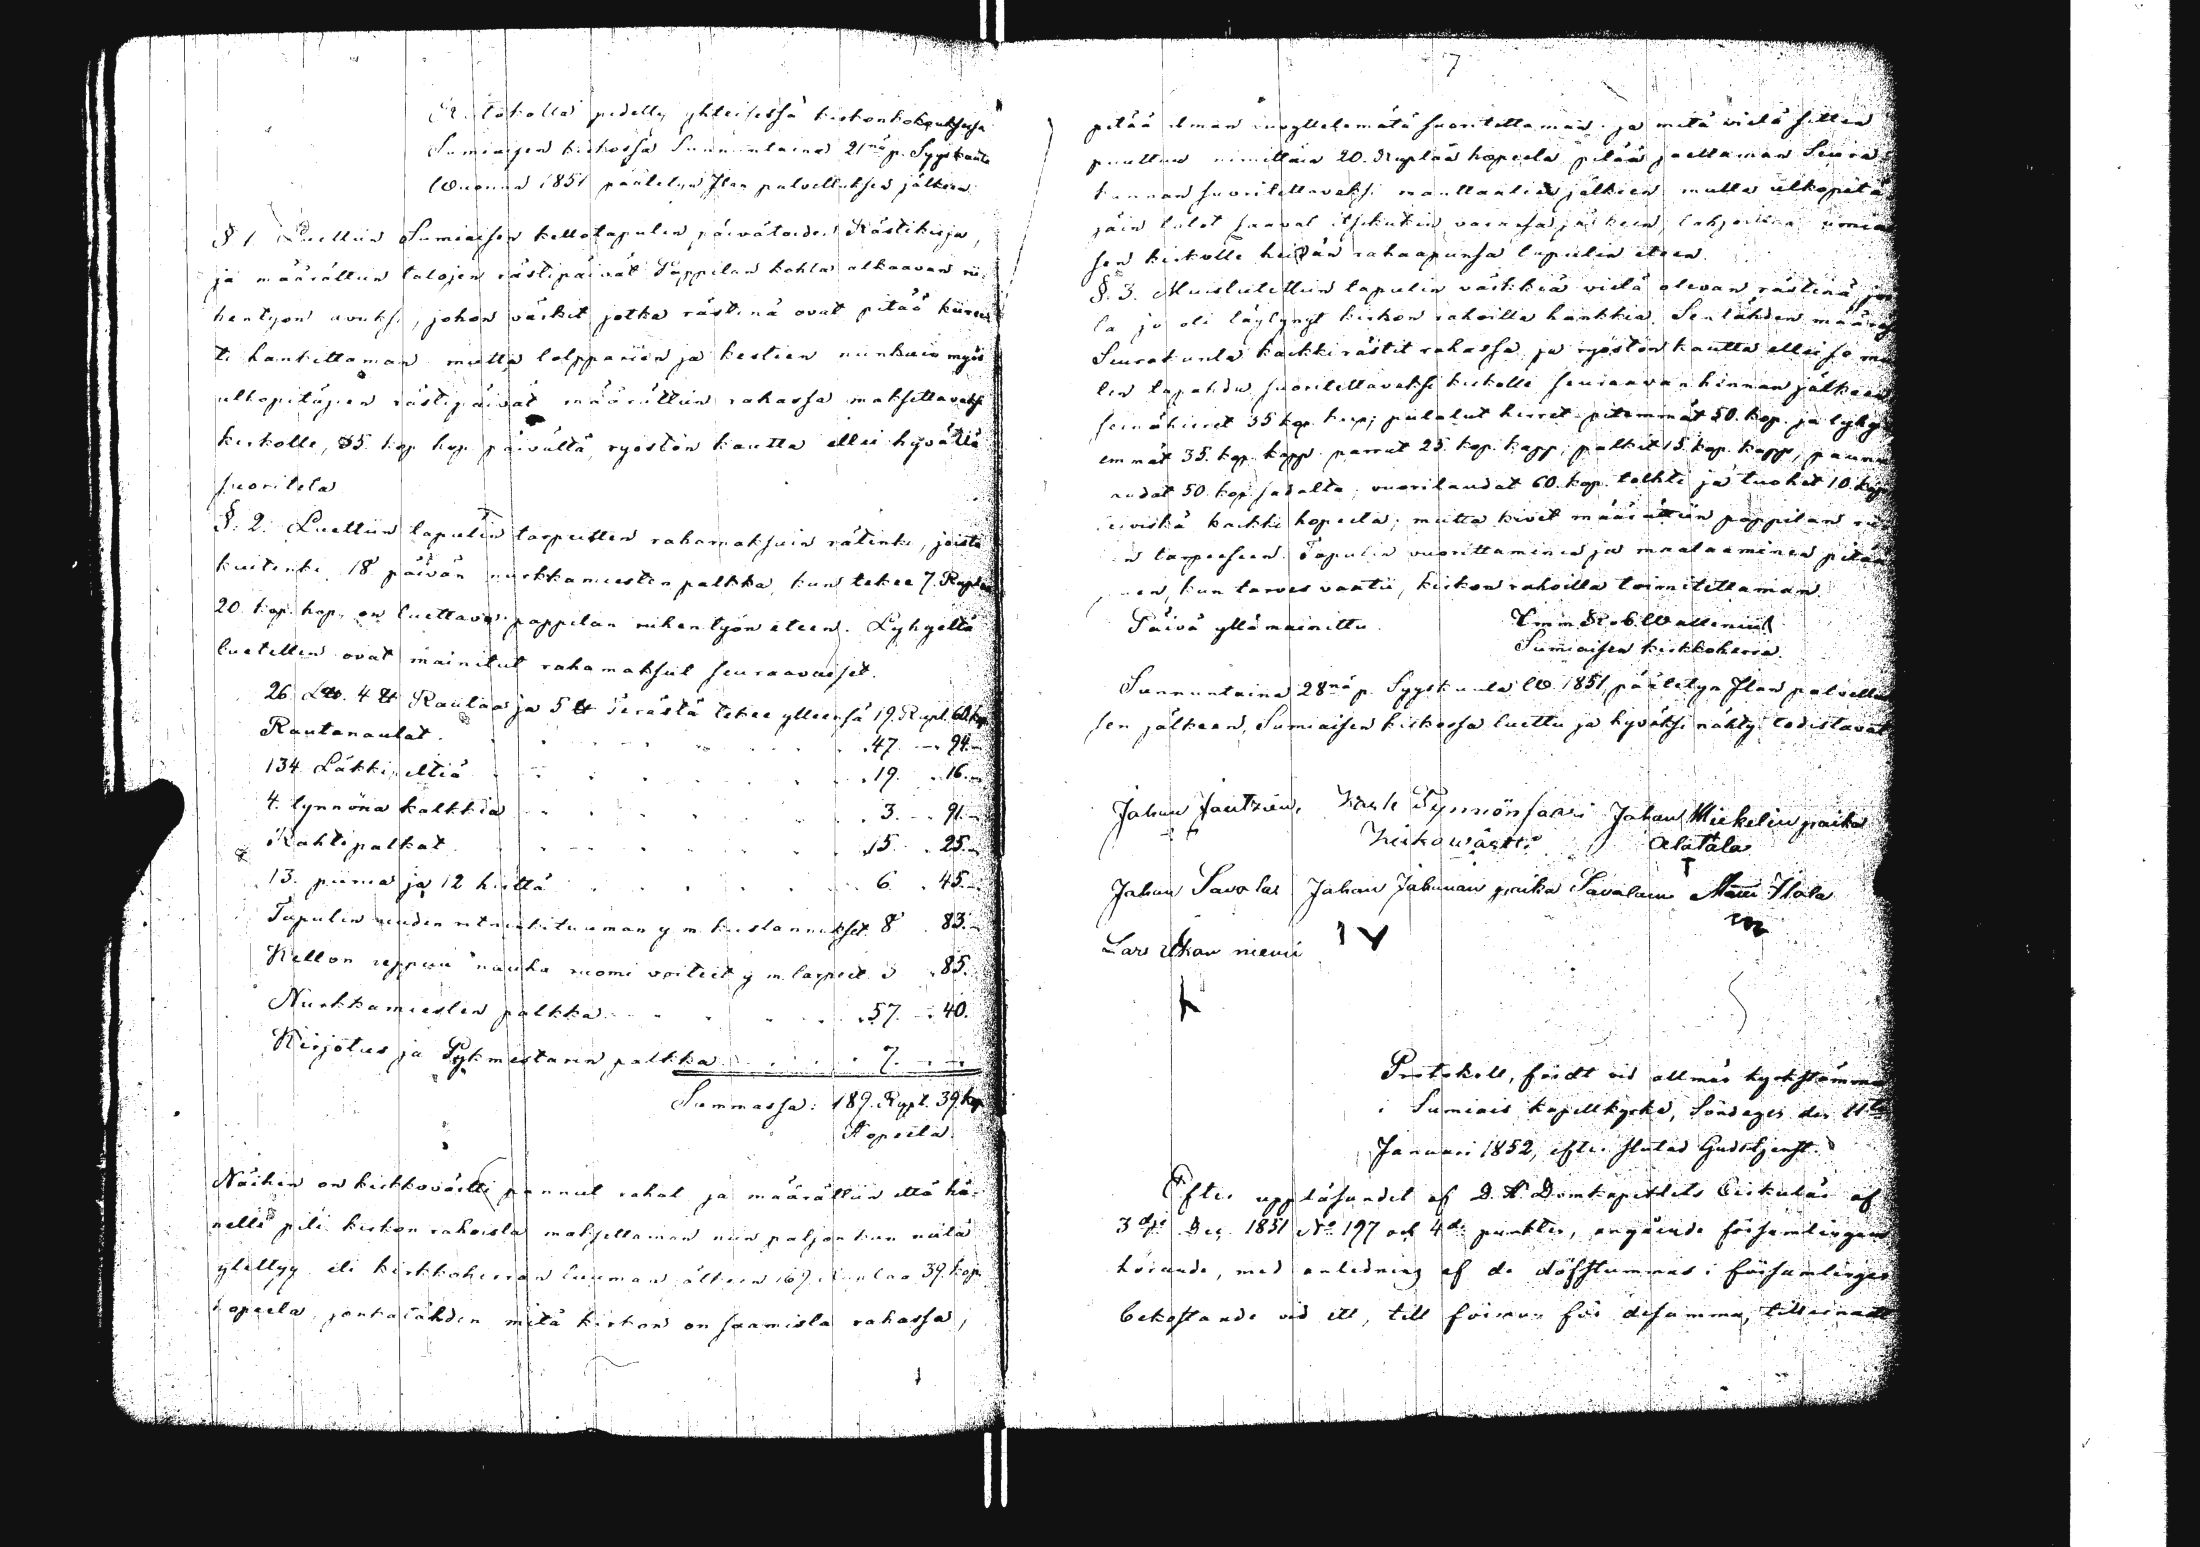 pidetty yhteisessä kirkonkokouksessa
Sumiaisen kirkossa Sunnuntaina 21nä p. Syyskuuta
Wuonna 1851 päätetyn Jlan palvelluksen jälkeen.
§ 1 Luettiin Sumiaisen kellotapulin päivätöiden Rästikirja,
ja määrättiin talojen rästipäivät Pappilan kohta alkaavan rii-
hentyön avuksi, johon värkit jotka rästinä ovat pitää kiirees
ti hankittaman mutta lolpparien ja kestien niinkuin myös
ulkopitäjien rästipäivät määrättiin rahassa maksettavaksi
kirkolle, 35. kop. hop. päivältä, ryöstön kautta ellei hyvällä
suoriteta
§. 2. Luettiin tapulin tarpeitten rahamaksuin rätinki, joista
kuitenki 18 päivän nurkkamiesten palkka, kun tekee 7. Ruplaa
20 kop. hop. on luettava pappilan riihentyön eteen. Lyhyeltä
luetellen ovat mainitut rahamaksut seuraavaiset.
26 L℔. 4 ℔ Rautaa ja 5 ℔ Terästä tekee ylleensä 19. Rupl. 60 kop
Rautanaulat . 47. — 94. —
134 Läkkipeltiä . 19. . 16. —
4. tynnöriä kalkkia . 3. . 91. —
Rahtipalkat . 15 . 25. —
13. piinia ja 12 hiiltä . 6 . 45. —
Tapulin uuden y. m. kustannukset 8 . 83. —
Kellon reppuu nauha ruomi voiteit y m. tarpeet 3 . 85. —
Nurkkamiesten palkka . 57. — 40.
Kirjotus ja Pykmestarin palkka . . . . 7. — —
Summassa: 189. Rupl. 39 kop
Hopeela.
Näihin on kirkkoväärtti pannut rahat ja määrättiin että hä-
nelle piti kirkon rahoista maksettaman niin paljon kun niitä
ylettyy eli kirkkoherran luuman älkeen 169 Ruplaa 39. kop.
hopeela, jonkatähden mitä kirkon on saamista rahassa,
7
pitää ilman suorittettaman. ja mitä vielä sitten
puuttuu nimittäin 20. Ruplaa hopeela pitää jaettaman Seura-
kunnan suoritettavaksi manttaalien jälkeen mutta ulkopitä-
jäin talot saavat itsekukin varansa jälkeen lahjoittaa
sen kirkolle heidän rahaapunsa tapulin eteen.
§. 3. Muistutettiin tapulin värkkiä vielä olevan rästinä, joi
la jo oli täytynyt kirkon rahoilla hankkia. Sentähden määräs
Seurakunta kaikki rästit rahassa ja ryöstön kautta ellei se muu
ten tapahdu suoritettavaksi kirkolle seuraavan hinnan jälkeen
seinähirret 35 kop. kapp; pitemmät 50. kop. ja lyhy
emmät 35. kop. kapp. parrut 25. kop. kapp; palkit 15. kop. kapp,
audat 50. kop sadalta; vuorilaudat 60. kop. tolhti ja tuohet 10. kop
leiviskä kaikki hopeela; mutta kivet määrättiin pappilan rii
n tarpeeseen. Tapulin vuorittaminen ja maalaaminen pitää
en, kun tarves vaatii, kirkon rahoilla toimitettaman.
Päivä yllämainittu. Emm Rob. Wallenius
Sumiaisen kirkkoherra.
Sunnuntaina 28nä p. Syyskuuta W. 1851, päätetyn Jlan palvelluk
sen jälkeen, Sumiaisen kirkossa luettu ja hyväksi nähty todistavat
Johan Jantzén, Tynnönsaari Johan Mickelin poika
Kirkowärtti Alatalo
Johan Savolax Johan Johanan poika Savolainen Matti Ilola
Lars niemi
Protokoll, fördt vid allmän kyrkstämma
i Sumiais kapellkyrka, Söndagen den 11te
Januari 1852, efter slutad Gudstjenst.
Efter uppläsandet af D. H. Domkapitlets Cirkulär af
3dje Dec. 1851 No. 197 och 4de punkten, angående församlingens
hörande, med anledning af de döfstummas i församlingen
bekostande vid ett, till förmån för desamma,